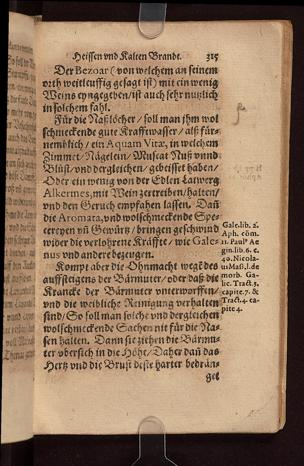 Heissen vnd Kalten Brandt. 315
Der Bezoar (von welchem an seinem
orth weitleuffig gesagt ist) mit ein wenig
Weins eyngegeben / ist auch sehr nutzlich
in solchem fahl.
Für die Naßlöcher / soll man jhm wol
schmeckende gute Krafftwasser / alß für-
nemblich / ein Aquam Vitæ, in welchem
Zimmet / Nägelein / Muscat Nuß vnnd
Blüst / vnd dergleichen / gebeitset haben /
Oder ein wenig von der Edlen Latwerg
Alkermes, mit Wein zertreiben / halten /
vnd den Geruch empfahen lassen. Dañ
die Aromata, vnd wolschmeckende Spe-
cereyen vñ Gewürtz / bringen geschwind
wider die verlohrne Kräfft / wie Gale-
nus vnd andere bezeugen.
Kompt aber die Ohnmacht wegẽ des
auffsteigens der Bärmuter / oder daß die
Krancke der Bärmuter vnterworffen /
vnd die weibliche Reinigung verhalten
sind / So soll man solche vnd dergleichen
wolschmeckende Sachen nit für die Na-
sen halten. Dann sie ziehen die Bärmu-
ter obersich in die Höhe / Daher dañ das
Hertz vnd die Brust desto harter bedrän-
get
Gale. lib. 2.
Aph. cõm.
11. Paul⁹ Ae
gin. lib. 6. c.
40. Nicola-
us Maß. l. de
morb. Ga-
lic. Tract. 3.
capite. 7. &
Tract. 4. ca-
pite 4.